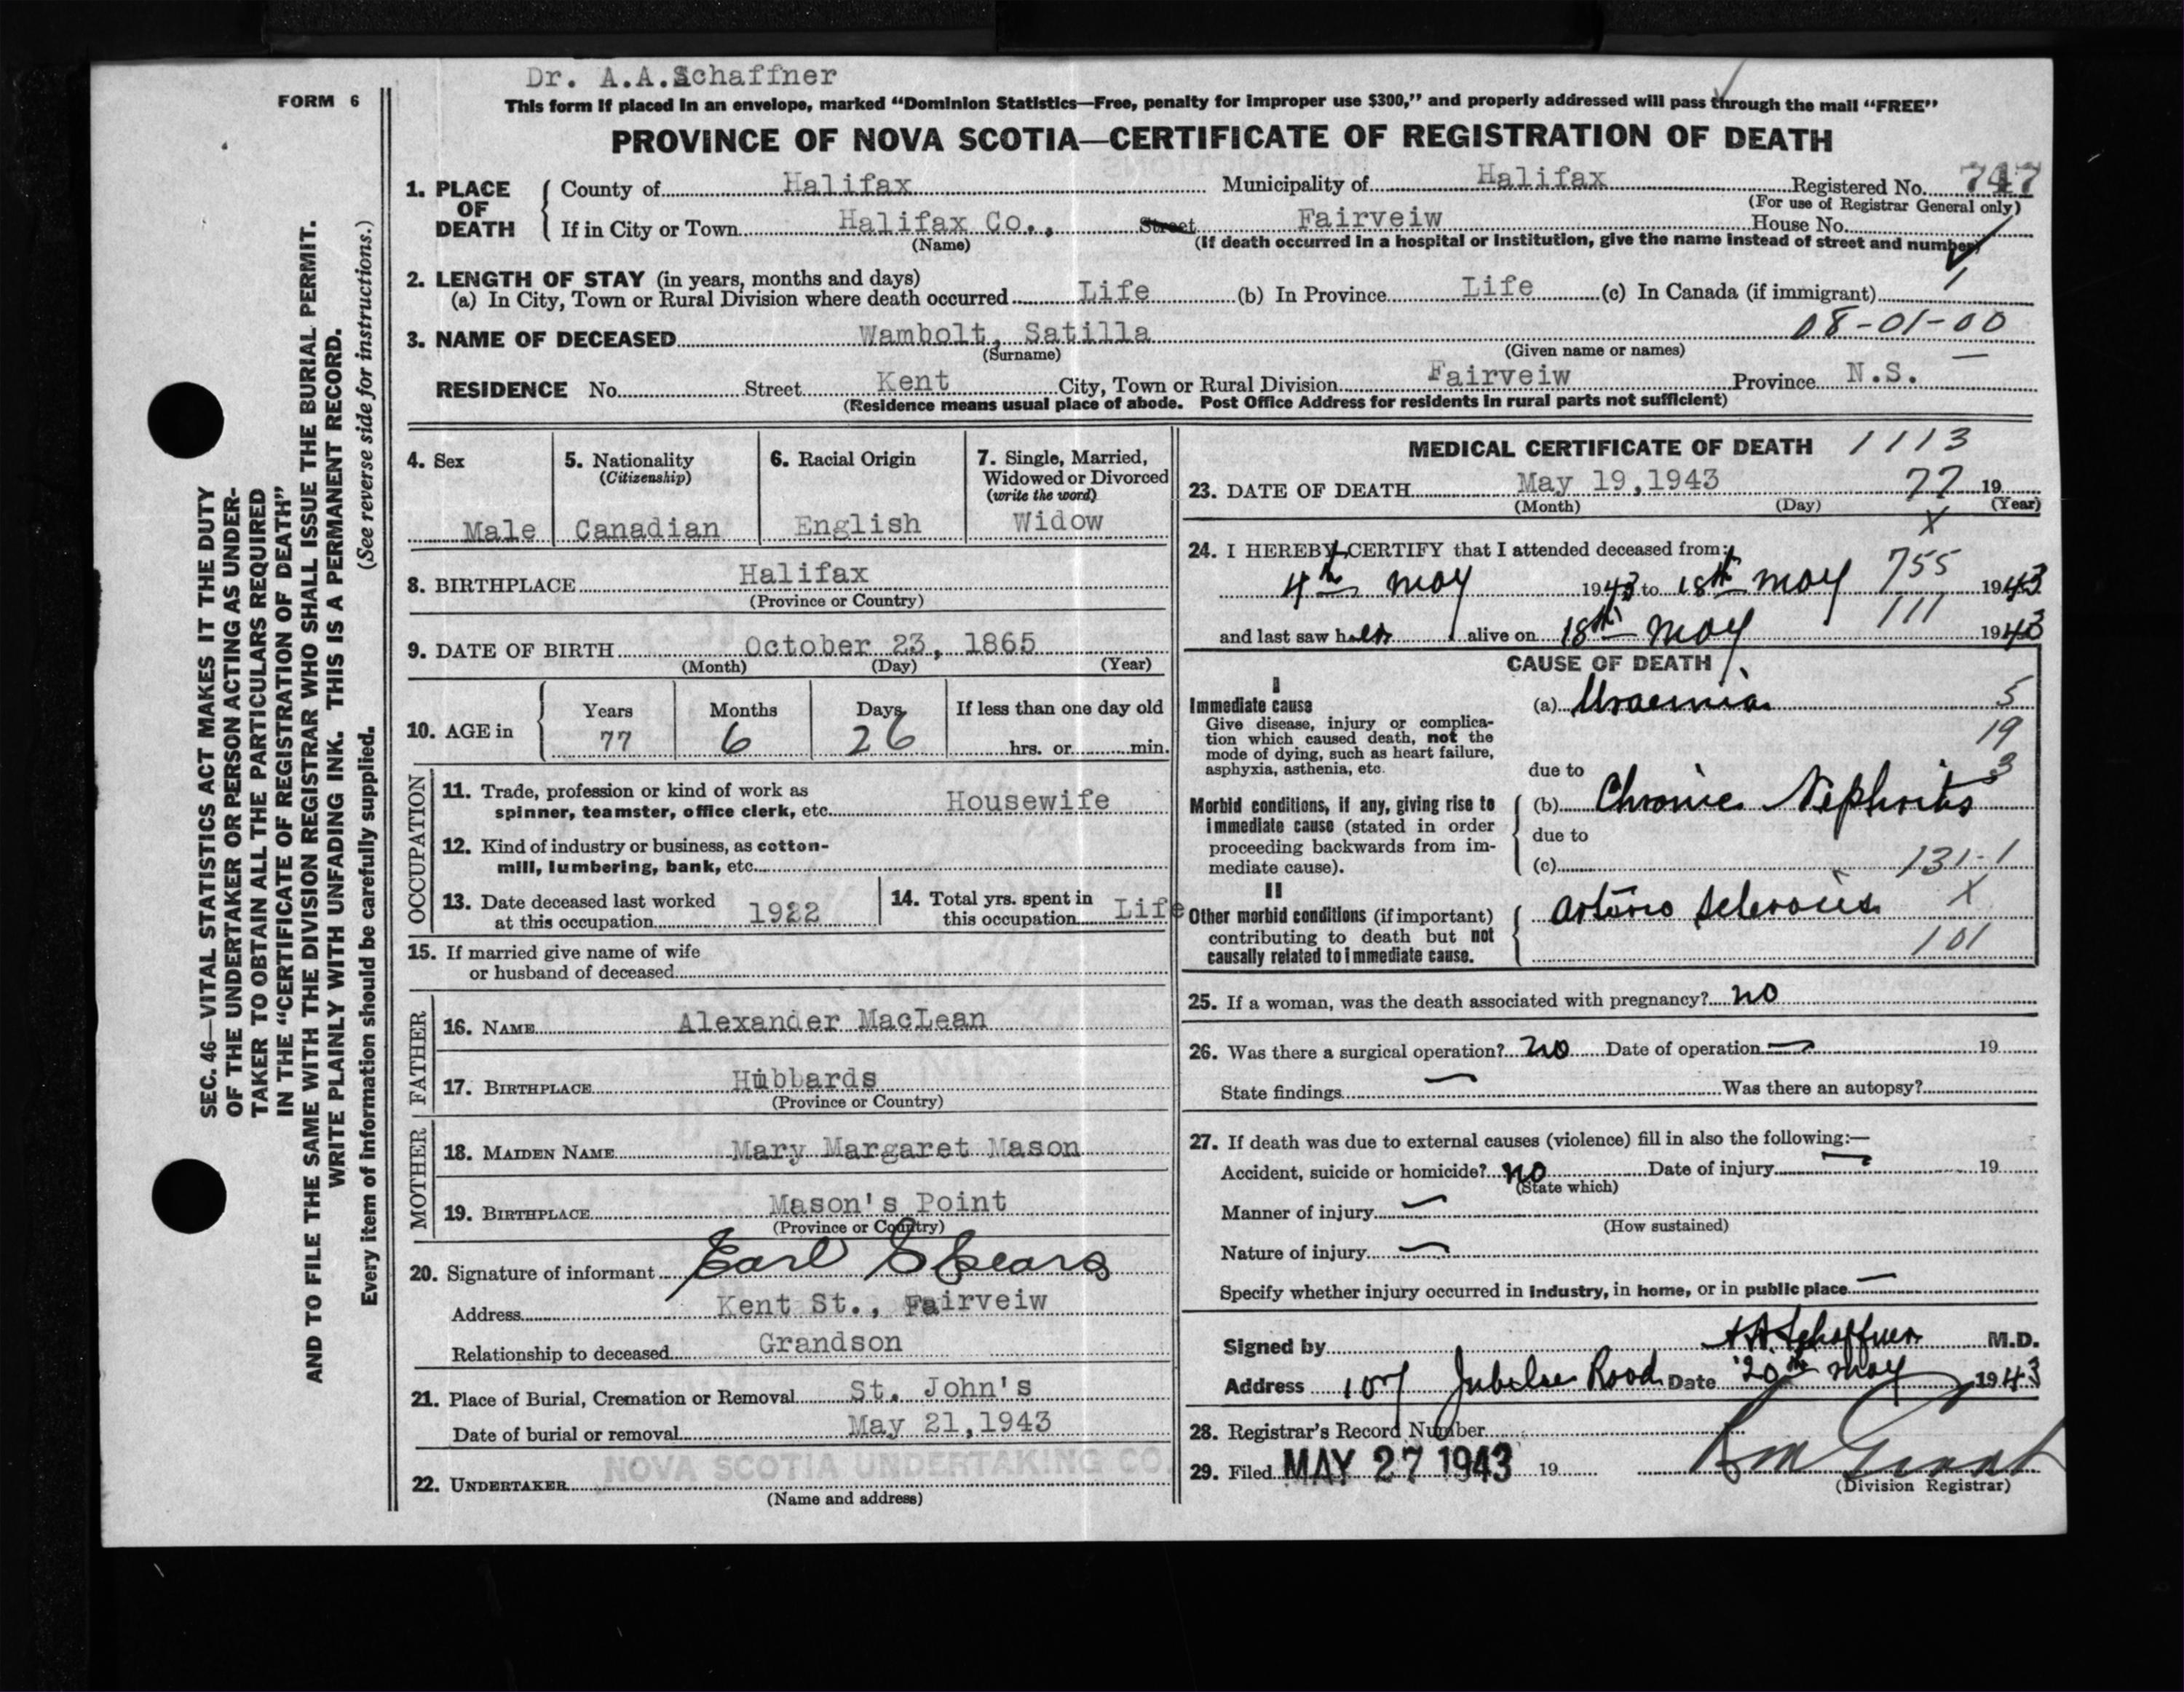 Dr. A.A.Schaffner
FORM 6
This form if placed in an envelope, marked “Dominion Statistics—Free, penalty for improper use $300,” and properly addressed will pass through the mail “FREE”
PROVINCE OF NOVA SCOTIA—CERTIFICATE OF REGISTRATION OF DEATH
1. PLACE OF DEATH
County of Halifax Municipality of Halifax Registered No. 747
(For use of Registrar General only)
If in City or Town Halifax Co., Street Fairveiw House No.
(Name) (If death occurred in a hospital or institution, give the name instead of street and number)
2. LENGTH OF STAY (in years, months and days)
(a) In City, Town or Rural Division where death occurred Life (b) In Province Life (c) In Canada (if immigrant)
08-01-00
3. NAME OF DECEASED Wambolt, Satilla
(Surname) (Given name or names)
RESIDENCE No. Street Kent City, Town or Rural Division Fairveiw Province N.S.
(Residence means usual place of abode. Post Office Address for residents in rural parts not sufficient)
4. Sex
Male
5. Nationality
(Citizenship)
Canadian
6. Racial Origin
English
7. Single, Married,
Widowed or Divorced
(write the word)
Widow
8. BIRTHPLACE Halifax
(Province or Country)
9. DATE OF BIRTH October 23, 1865
(Month) (Day) (Year)
10. AGE in
Years Months Days If less than one day old
77 6 26 hrs. or min.
OCCUPATION
11. Trade, profession or kind of work as
spinner, teamster, office clerk, etc. Housewife
12. Kind of industry or business, as cotton-
mill, lumbering, bank, etc.
13. Date deceased last worked
at this occupation 1922
14. Total yrs. spent in
this occupation Life
15. If married give name of wife
or husband of deceased
FATHER
16. NAME Alexander MacLean
17. BIRTHPLACE Hubbards
(Province or Country)
MOTHER
18. MAIDEN NAME Mary Margaret Mason
19. BIRTHPLACE Mason's Point
(Province or Country)
20. Signature of informant Earl Spears
Address Kent St., Fairveiw
Relationship to deceased Grandson
21. Place of Burial, Cremation or Removal St. John's
Date of burial or removal May 21,1943
22. UNDERTAKER NOVA SCOTIA UNDERTAKING CO.
(Name and address)
MEDICAL CERTIFICATE OF DEATH 1113
23. DATE OF DEATH May 19,1943 77 19
(Month) (Day) (Year)
X
24. I HEREBY CERTIFY that I attended deceased from:
4th May 1943 to 18th May 755 1943
and last saw her alive on 18th May 111 1943
CAUSE OF DEATH
I
Immediate cause
Give disease, injury or complica-
tion which caused death, not the
mode of dying, such as heart failure,
asphyxia, asthenia, etc.
(a) Uraemia 5
19
due to 3
Morbid conditions, if any, giving rise to
immediate cause (stated in order
proceeding backwards from im-
mediate cause).
(b) Chronic Nephritis
due to
(c) 131-1
II
Other morbid conditions (if important)
contributing to death but not
causally related to immediate cause.
Arterio sclerosis X
101
25. If a woman, was the death associated with pregnancy? no
26. Was there a surgical operation? no Date of operation — 19
State findings — Was there an autopsy?
27. If death was due to external causes (violence) fill in also the following:—
Accident, suicide or homicide? no Date of injury — 19
(State which)
Manner of injury —
(How sustained)
Nature of injury —
Specify whether injury occurred in industry, in home, or in public place —
Signed by A.A. Schaffner M.D.
Address 107 Jubilee Road Date 20th May 1943
28. Registrar's Record Number
29. Filed MAY 27 1943 19
(Division Registrar)
SEC. 46—VITAL STATISTICS ACT MAKES IT THE DUTY
OF THE UNDERTAKER OR PERSON ACTING AS UNDER-
TAKER TO OBTAIN ALL THE PARTICULARS REQUIRED
IN THE “CERTIFICATE OF REGISTRATION OF DEATH”
AND TO FILE THE SAME WITH THE DIVISION REGISTRAR WHO SHALL ISSUE THE BURIAL PERMIT.
WRITE PLAINLY WITH UNFADING INK. THIS IS A PERMANENT RECORD.
Every item of information should be carefully supplied. (See reverse side for instructions.)